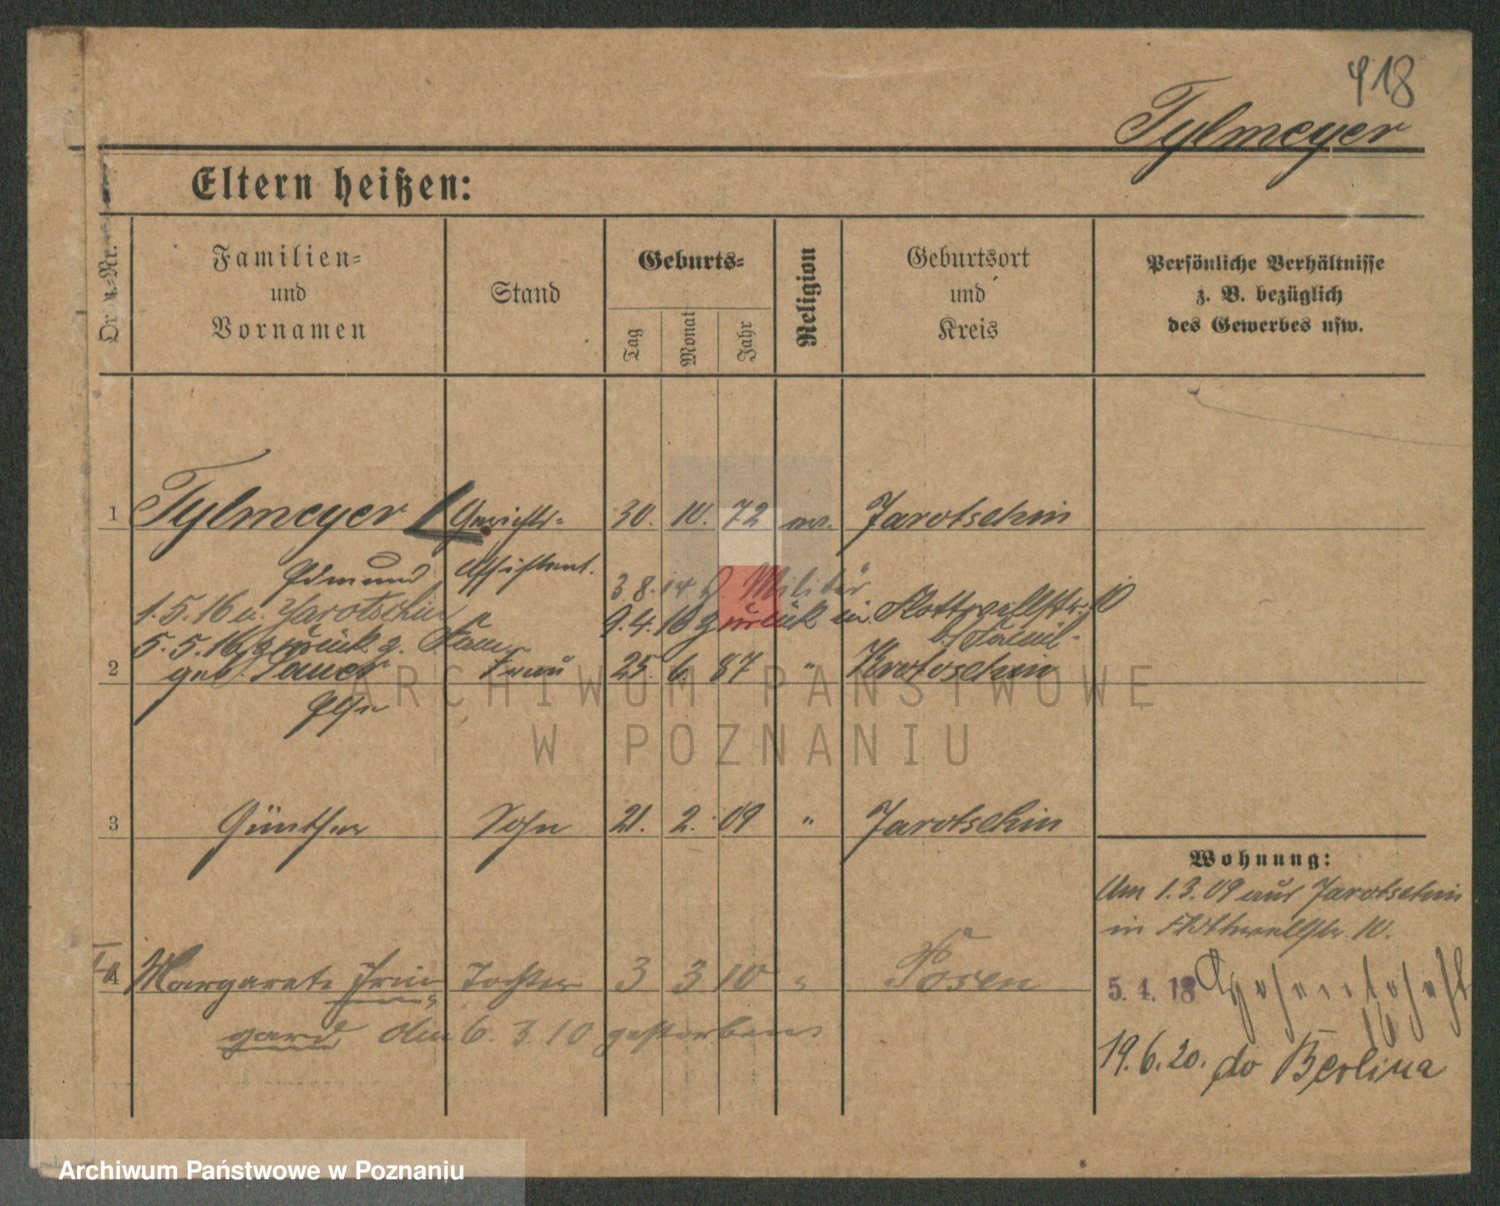 418
Tylmeyer
Eltern heißen:
Ordn.-Nr.
Familien-
und
Vornamen
Stand
Geburts-
Tag
Monat
Jahr
Religion
Geburtsort
und
Kreis
Persönliche Verhältnisse
z. B. bezüglich
des Gewerbes usw.
1 Tylmeyer Gerichts- 30. 10. 72 ev. Jarotschin
Edmund Assistent.
3.8.14 z. Militär
1.5.16 n. Jarotschin
9.4.16 zurück in Flottwellstr. 10
5.5.16 zurück z. Fam.
b. Famil.
2 geb. Sauer Frau 25. 6. 87 " Krotoschin
Else
3 Günther Sohn 21. 2. 09 " Jarotschin
Wohnung:
Am 1.3.09 aus Jarotschin
in Flottwellstr. 10.
4 Margarete Irm- Tochter 3 3 10 " Posen
gard Am 6. 3. 10 gestorben
5. 4. 18 Hohenlohestr
16
19.6.20. do Berlina
ARCHIWUM PAŃSTWOWE
W POZNANIU
Archiwum Państwowe w Poznaniu